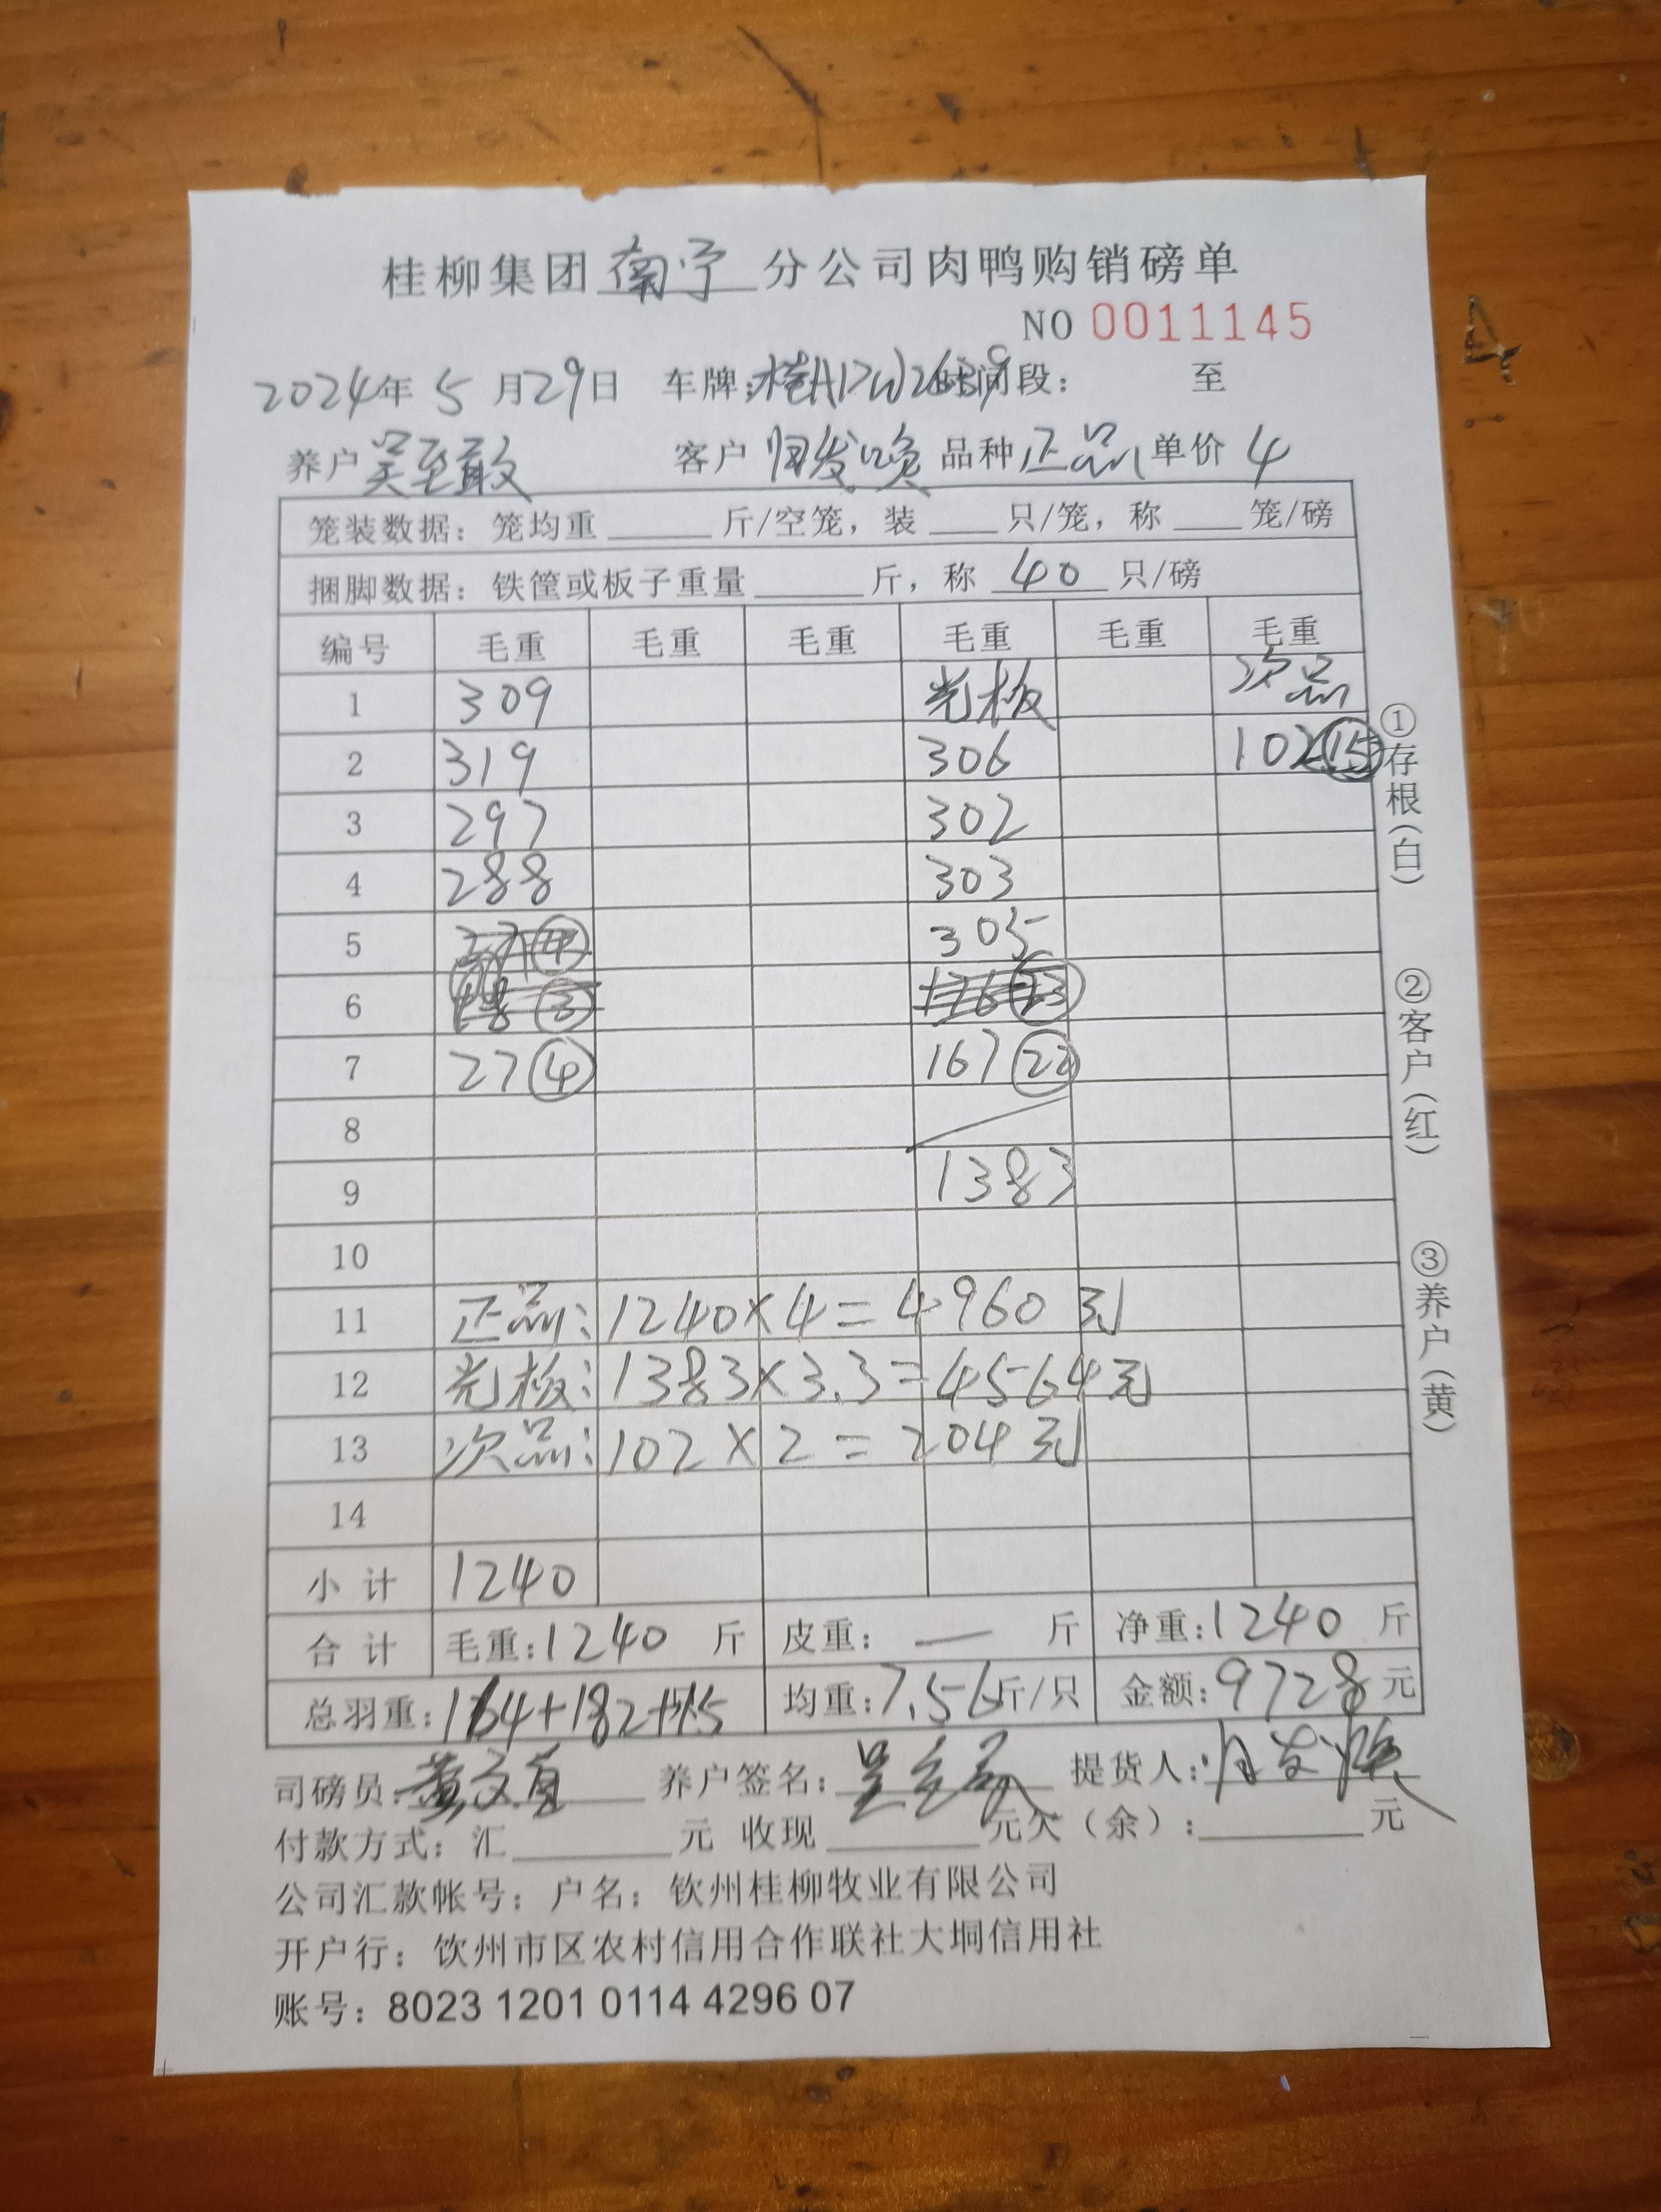 桂柳集团南宁分公司肉鸭购销磅单
NO 0011145
2024年 5 月29日 车牌: 时间段: 至
养户 吴至敢 客户 归发唤 品种 正品 单价 4
笼装数据: 笼均重 斤/空笼, 装 只/笼, 称 笼/磅
捆脚数据: 铁筐或板子重量 斤, 称 40 只/磅
编号 毛重 毛重 毛重 毛重 毛重 毛重
1 309 光板 次品
2 319 306 102 ⑮
3 297 302
4 288 303
5 305
6
7 27 ④ 167 ㉒
8
9 1383
10
11 正品: 1240×4=4960 元
12 光板: 1383×3.3=4564元
13 次品: 102×2=204元
14
小计 1240
合计 毛重:1240 斤 皮重: — 斤 净重:1240 斤
总羽重:164+182+15 均重:7.56斤/只 金额:9728元
司磅员: 养户签名: 提货人:
付款方式: 汇 元 收现 元欠(余): 元
公司汇款帐号: 户名: 钦州桂柳牧业有限公司
开户行: 钦州市区农村信用合作联社大垌信用社
账号: 8023 1201 0114 4296 07
①存根(白)
②客户(红)
③养户(黄)